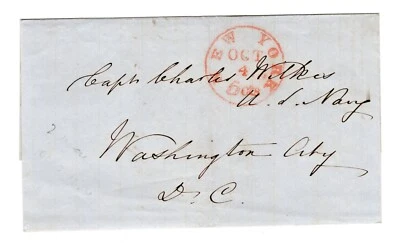 NEW YORK
OCT
4
5 cts
Capt Charles Wilkes
U. S. Navy
Washington City
D. C.